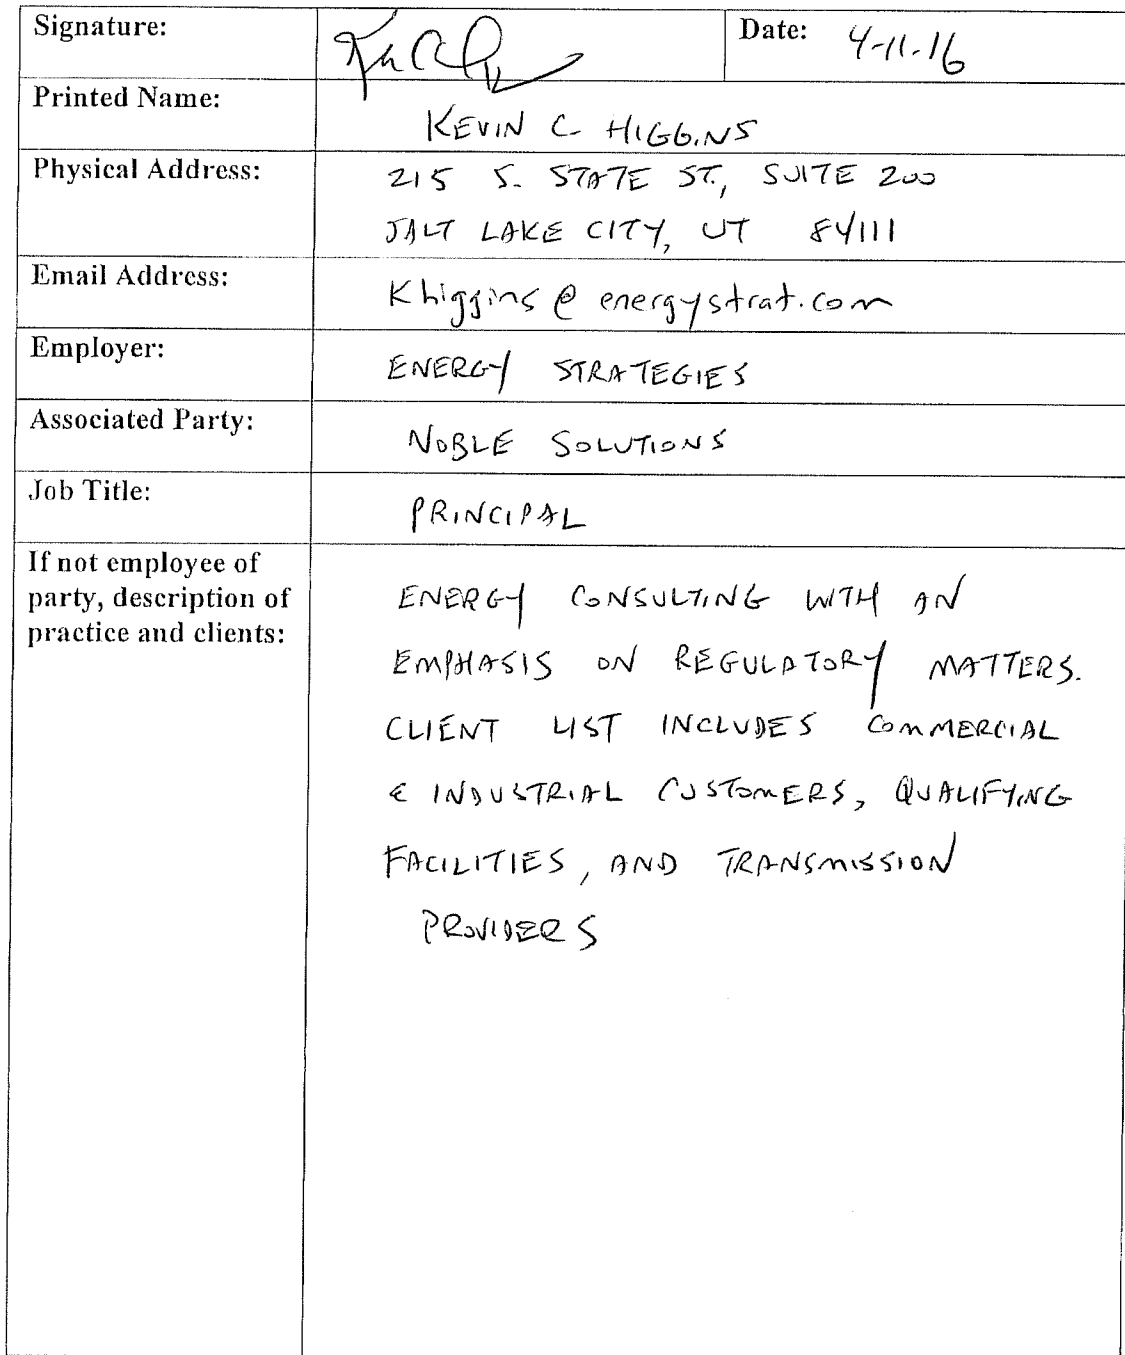 Signature:
Date: 4-11-16
Printed Name: KEVIN C. HIGGINS
Physical Address: 215 S. STATE ST., SUITE 200
SALT LAKE CITY, UT 84111
Email Address: Khiggins@energystrat.com
Employer: ENERGY STRATEGIES
Associated Party: NOBLE SOLUTIONS
Job Title: PRINCIPAL
If not employee of
party, description of
practice and clients:
ENERGY CONSULTING WITH AN
EMPHASIS ON REGULATORY MATTERS.
CLIENT LIST INCLUDES COMMERCIAL
& INDUSTRIAL CUSTOMERS, QUALIFYING
FACILITIES, AND TRANSMISSION
PROVIDERS